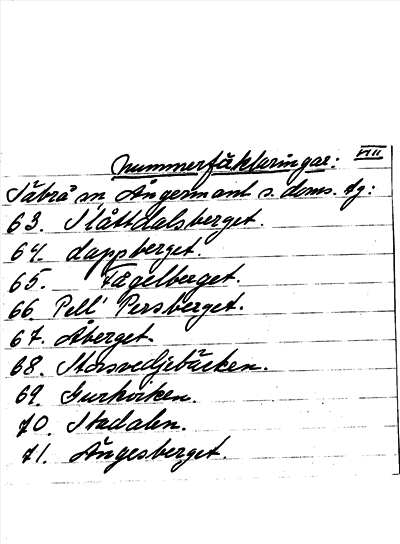 VIII
Nummerfäklaringar:
Säbrå sn, Ångermanl. s. doms. tg:
63. Slåttdalsberget.
64. Lappberget.
65. Fågelberget.
66. Pell' Persberget.
67. Åberget.
68. Storsvedjebäcken.
69. Gurkviken.
70. Stadalen.
71. Ängesberget.